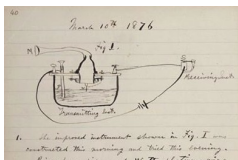 60
March 10th 1876
Fig 1.
M
Receiving Inst.
Transmitting Inst.
1. The improved instrument shown in Fig. I was
constructed this morning and tried this evening.